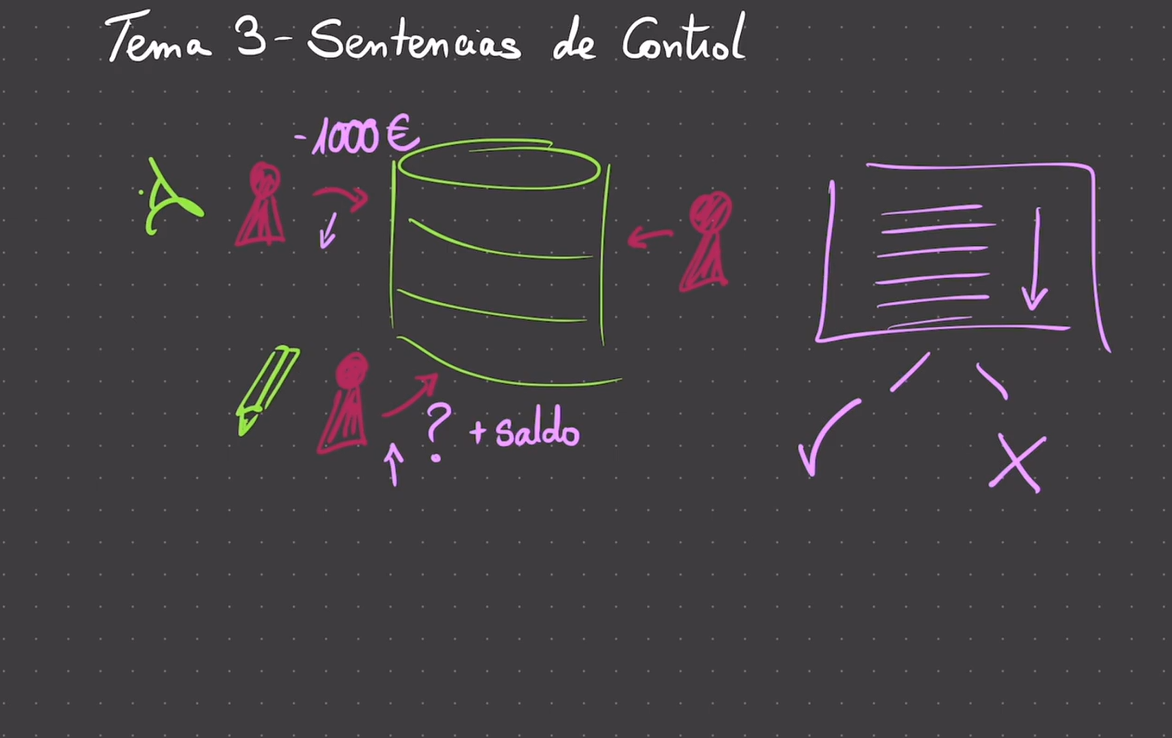 Tema 3 - Sentencias de Control
-1000 €
? + saldo